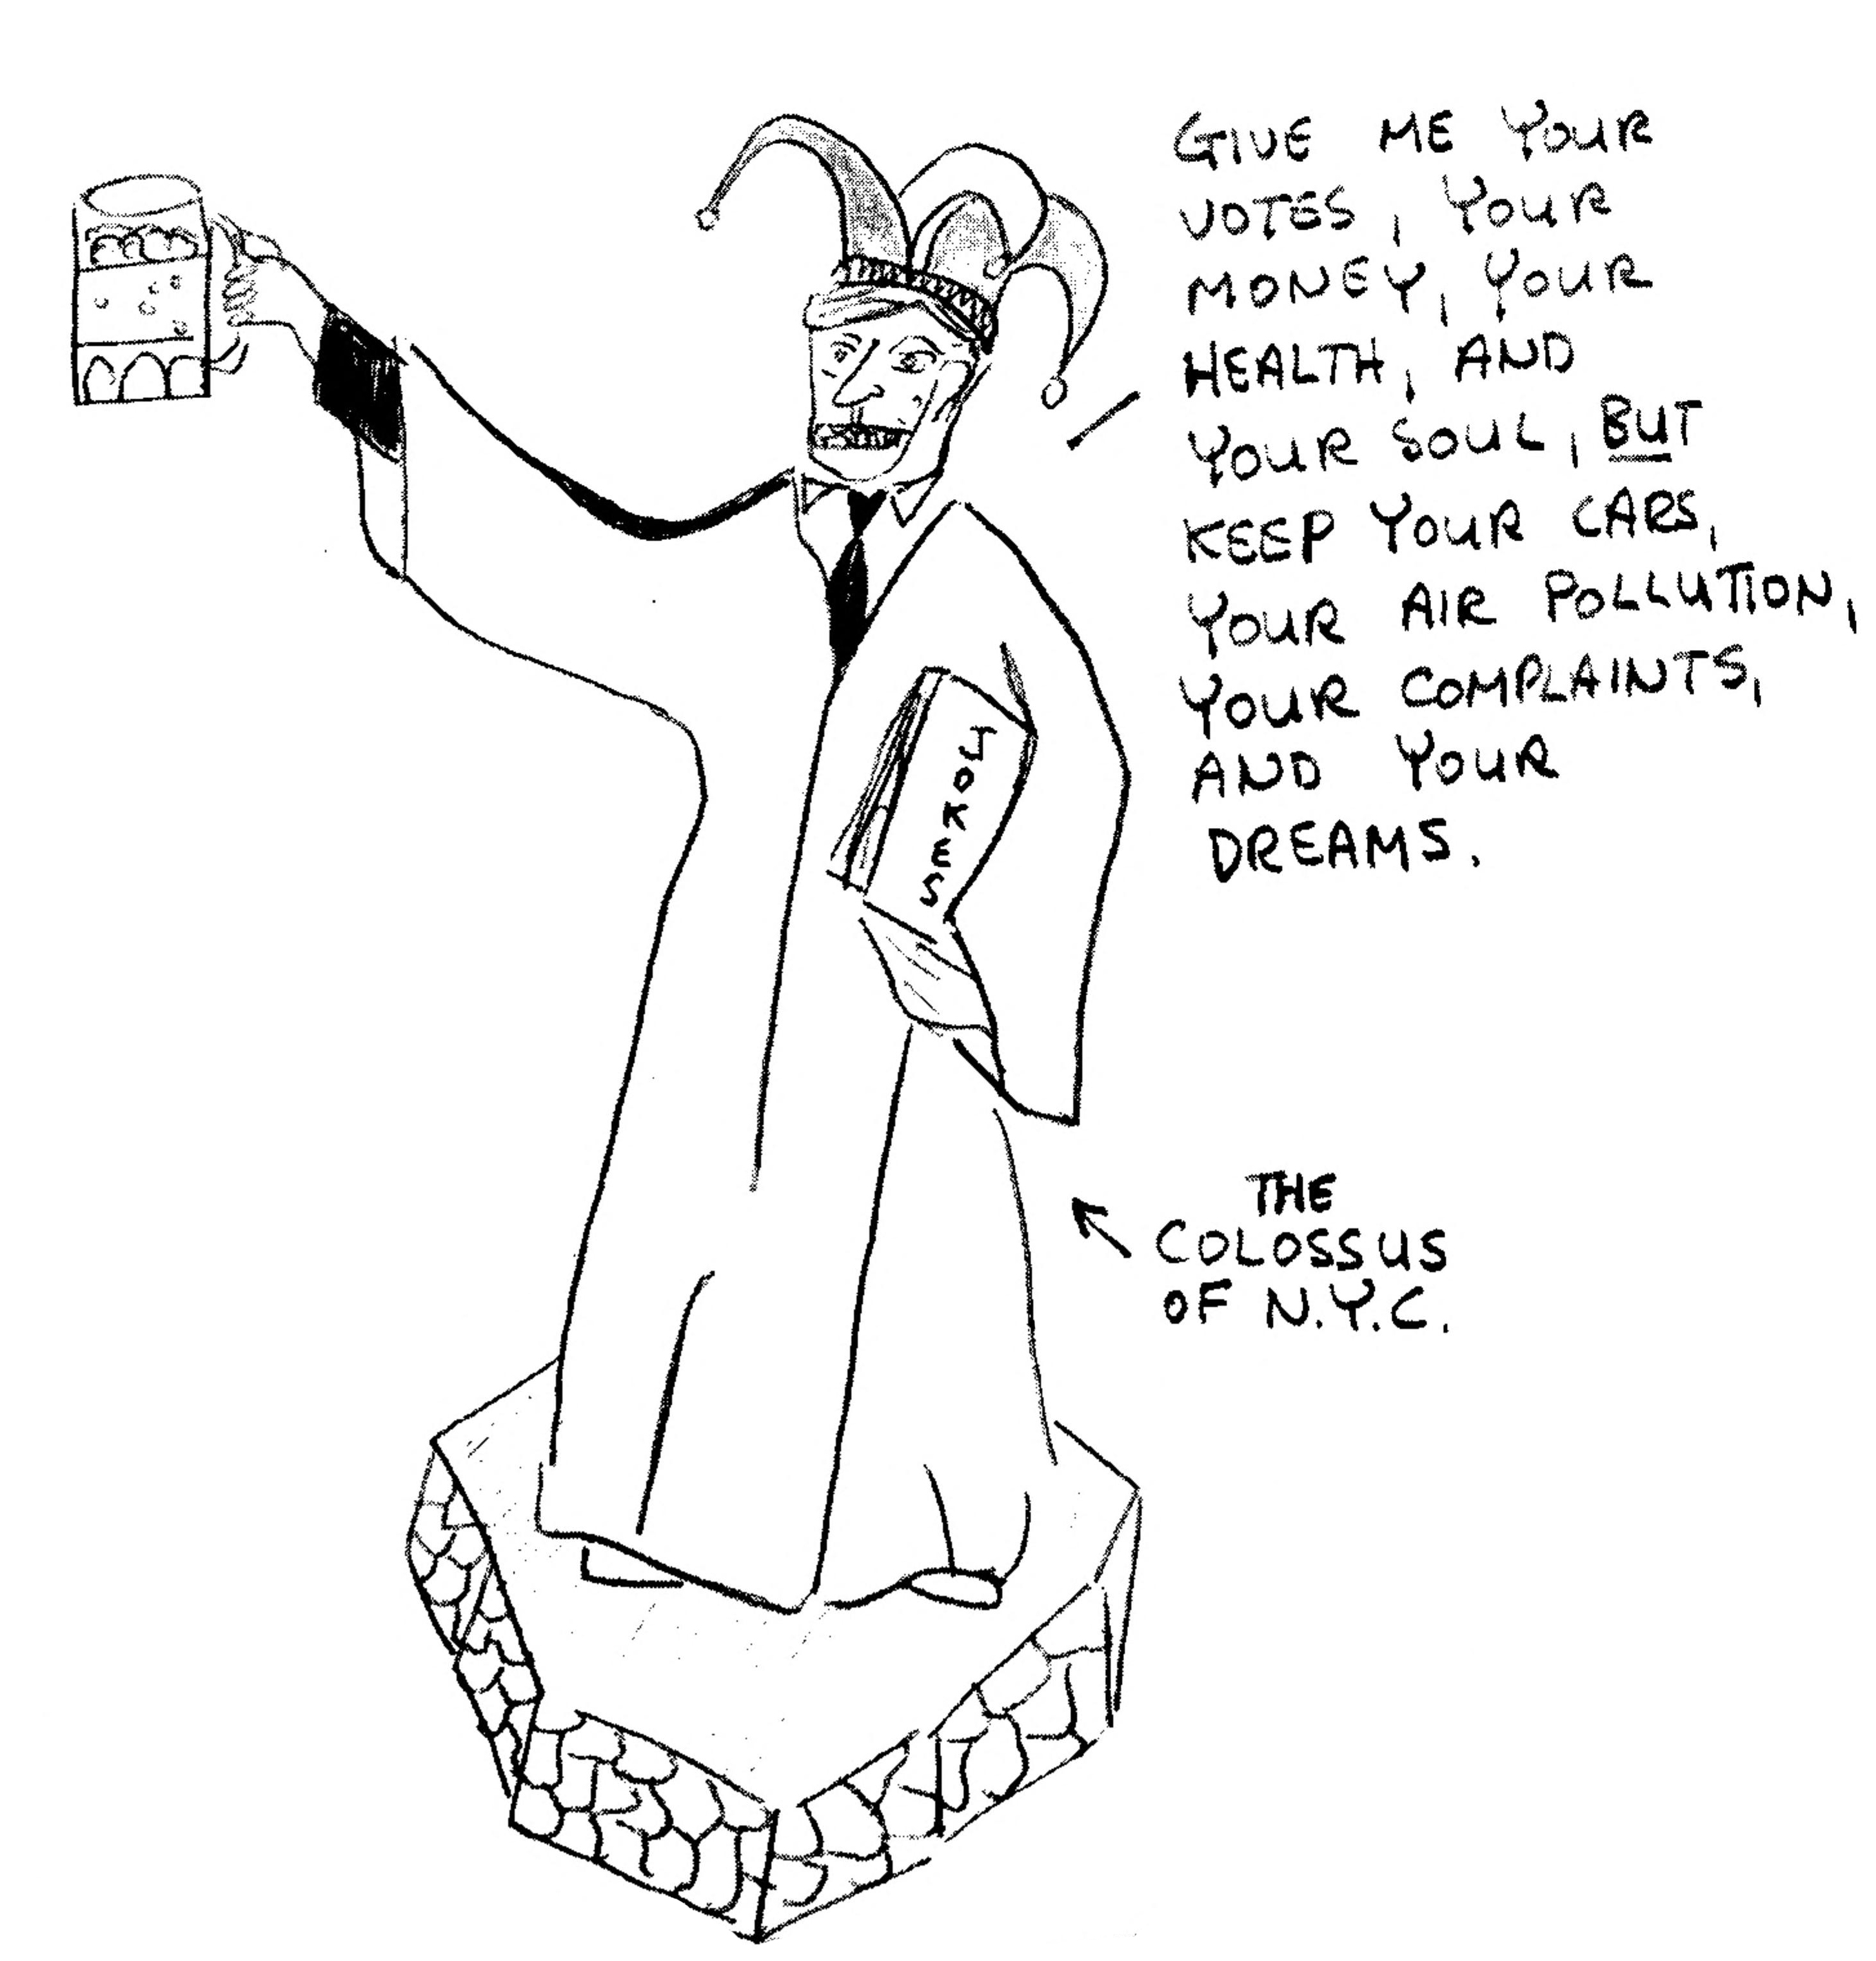 GIVE ME YOUR
VOTES, YOUR
MONEY, YOUR
HEALTH, AND
YOUR SOUL, BUT
KEEP YOUR CARS,
YOUR AIR POLLUTION,
YOUR COMPLAINTS,
AND YOUR
DREAMS.
JOKES
THE
COLOSSUS
OF N.Y.C.